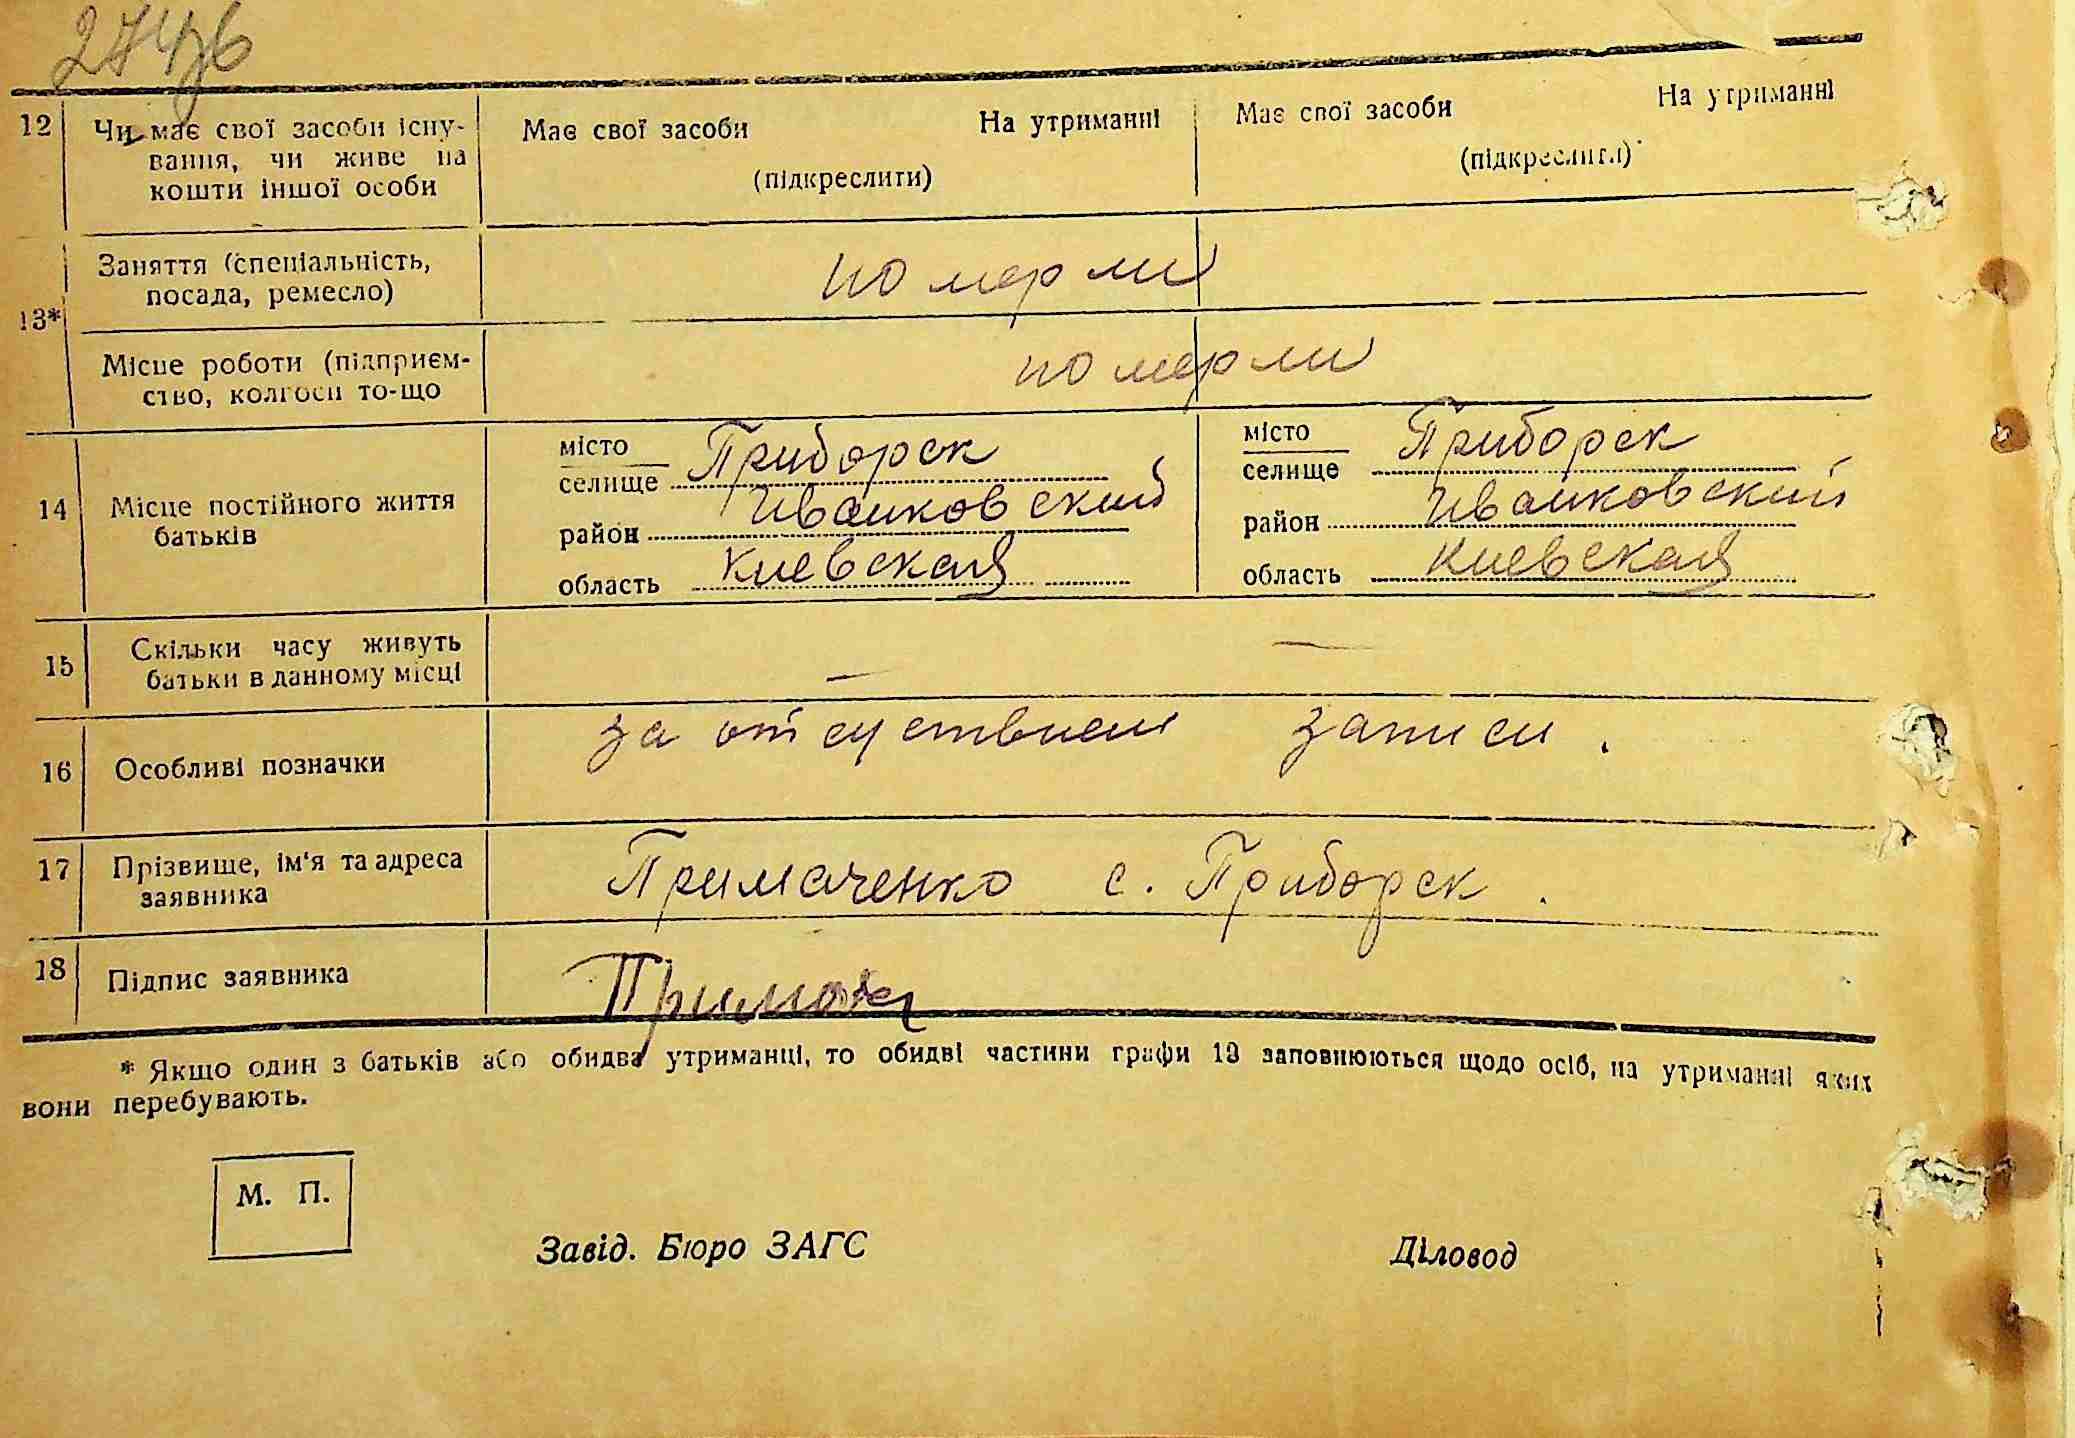 274зв
12 Чи має свої засоби існу-
вання, чи живе на
кошти іншої особи
Має свої засоби На утриманні
(підкреслити)
Має свої засоби На утриманні
(підкреслити)
13*
Заняття (спеціальність,
посада, ремесло)
померли
Місце роботи (підприєм-
ство, колгосп то-що
померли
14 Місце постійного життя
батьків
місто
селище Приборск
район Иванковский
область Киевская
місто
селище Приборск
район Иванковский
область Киевская
15 Скільки часу живуть
батьки в данному місці
— —
16 Особливі позначки
за отсуствием записи.
17 Прізвище, ім'я та адреса
заявника
Примаченко с. Приборск.
18 Підпис заявника
* Якщо один з батьків або обидва утриманці, то обидві частини графи 13 заповнюються щодо осіб, на утриманні яких
вони перебувають.
М. П.
Завід. Бюро ЗАГС Діловод